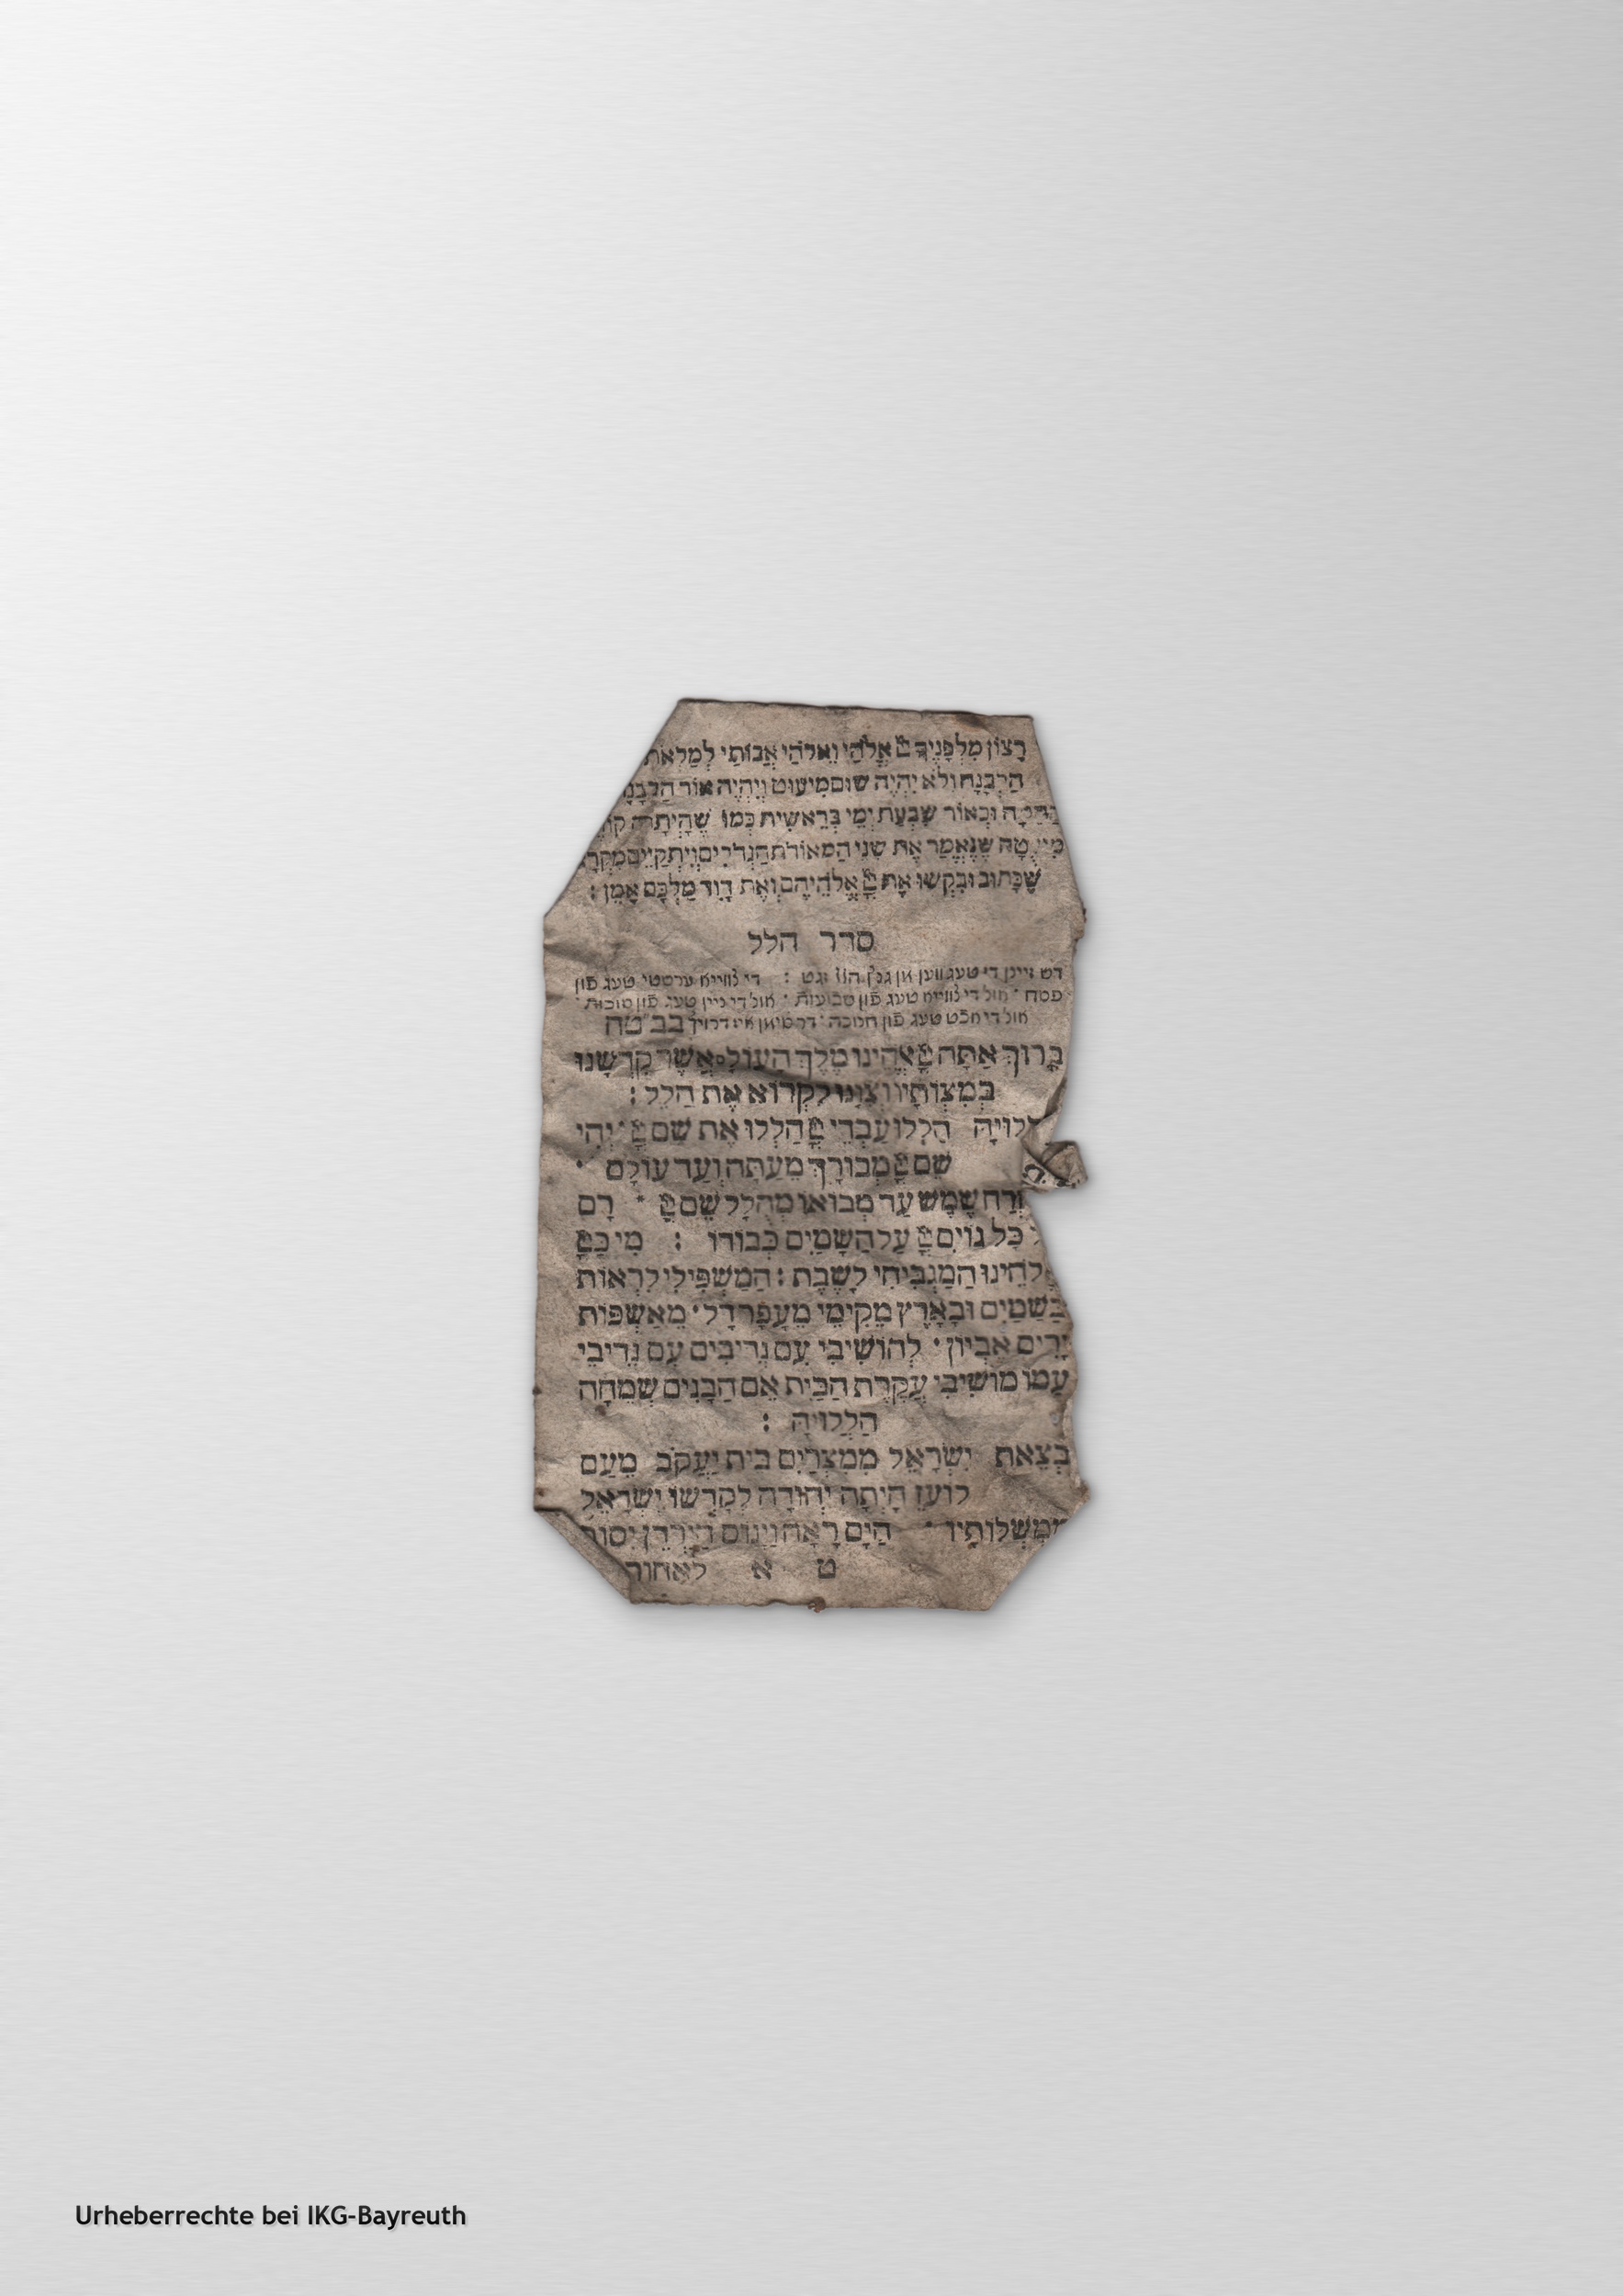 רָצוֹן מִלְּפָנֶיךָ יְיָ אֱלֹהַי וֵאלֹהֵי אֲבוֹתַי לְמַלְאֹת
הַלְּבָנָה וְלֹא יִהְיֶה שׁוּם מִיעוּט וְיִהְיֶה אוֹר הַלְּבָנָ
וּכְאוֹר שִׁבְעַת יְמֵי בְּרֵאשִׁית כְּמוֹ שֶׁהָיְתָה
שֶׁנֶּאֱמַר אֶת שְׁנֵי הַמְּאוֹרֹת הַגְּדֹלִים וְיִתְקַיֵּים מִקְרָא
שֶׁכָּתוּב וּבִקְשׁוּ אֶת יְיָ אֱלֹהֵיהֶם וְאֶת דָּוִד מַלְכָּם אָמֵן :
סדר הלל
דש זיינן די טעג ווען מן גנץ הלל זגט : די צווייא ערשטי טעג פון
פסח · אול די צווייא טעג פון שבועות · אול די ניין טעג פון סוכות ·
אול די אכט טעג פון חנוכה ·
בָּרוּךְ אַתָּה יְיָ אֱלֹהֵינוּ מֶלֶךְ הָעוֹלָם אֲשֶׁר קִדְּשָׁנוּ
בְּמִצְוֹתָיו וְצִוָּנוּ לִקְרוֹא אֶת הַלֵּל :
לוּיָהּ הַלְלוּ עַבְדֵי יְיָ הַלְלוּ אֶת שֵׁם יְיָ · יְהִי
שֵׁם יְיָ מְבוֹרָךְ מֵעַתָּה וְעַד עוֹלָם ·
זְרַח שֶׁמֶשׁ עַד מְבוֹאוֹ מְהֻלָּל שֵׁם יְיָ * רָם
כָּל גּוֹיִם יְיָ עַל הַשָּׁמַיִם כְּבוֹדוֹ : מִי כַּיְיָ
אֱלֹהֵינוּ הַמַּגְבִּיהִי לָשָׁבֶת : הַמַּשְׁפִּילִי לִרְאוֹת
בַּשָּׁמַיִם וּבָאָרֶץ מְקִימִי מֵעָפָר דָּל · מֵאַשְׁפּוֹת
יָרִים אֶבְיוֹן · לְהוֹשִׁיבִי עִם נְדִיבִים עִם נְדִיבֵי
עַמּוֹ מוֹשִׁיבִי עֲקֶרֶת הַבַּיִת אֵם הַבָּנִים שְׂמֵחָה
הַלְלוּיָהּ :
בְּצֵאת יִשְׂרָאֵל מִמִּצְרַיִם בֵּית יַעֲקֹב מֵעַם
לוֹעֵז הָיְתָה יְהוּדָה לְקָדְשׁוֹ יִשְׂרָאֵל
מַמְשְׁלוֹתָיו · הַיָּם רָאָה וַיָּנוֹס הַיַּרְדֵּן יִסּוֹב
ט א לאחור
Urheberrechte bei IKG-Bayreuth